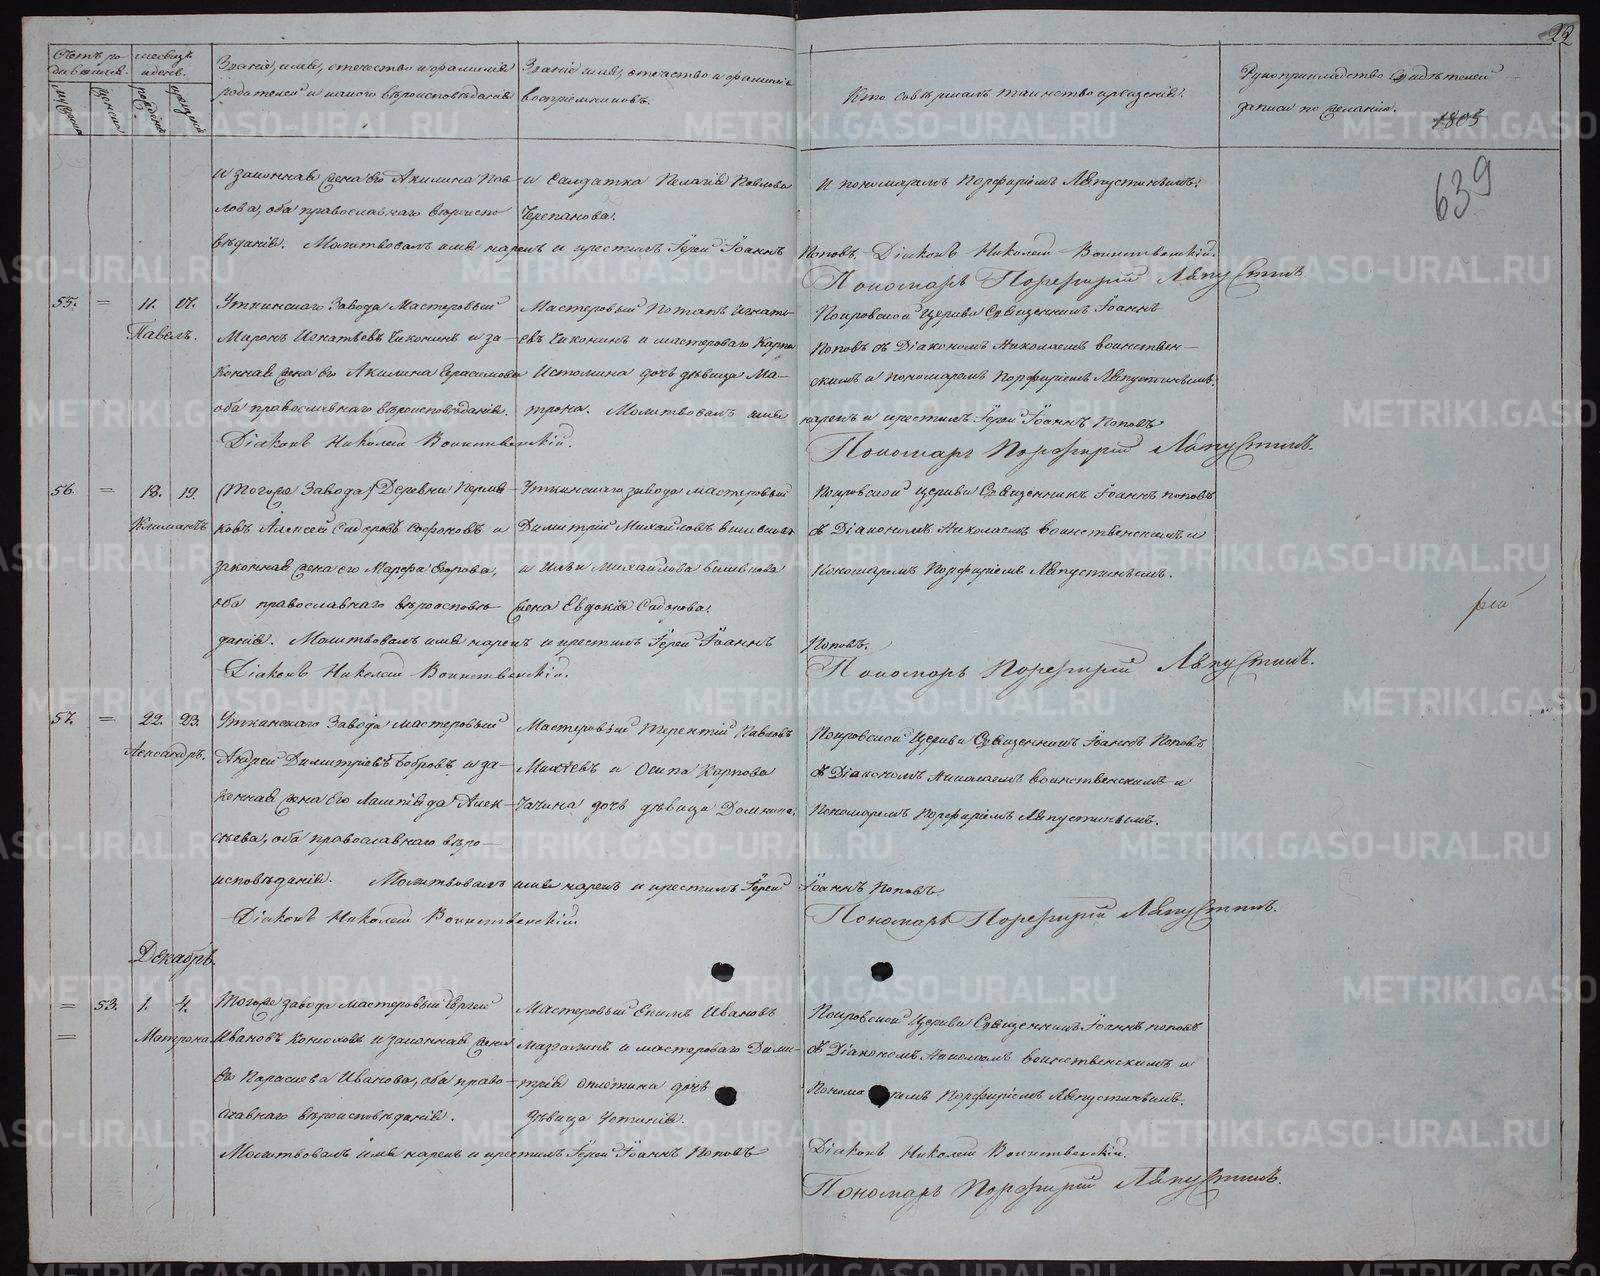 22
Счетъ родившихся.
Мѣсяцъ и день.
Званіе, имя, отчество и фамилія
родителей и какого вѣроисповѣданія
Званіе имя, отчество и фамилія
воспріемниковъ.
Кто совершалъ таинство крещенія.
Рукоприкладство свидѣтелей
записи по желанію.
1805
639
мужеска
женска
рожденія
крещенія
и законная жена его Акилина Пав-
лова, оба православнаго вѣроиспо
вѣданія. Молитвовалъ имя нарекъ и крестилъ Іерей Іоаннъ
и Солдатка Пелагія Павлова
Черепанова.
и пономаремъ Порфиріемъ Ляпустинымъ.
Поповъ. Діаконъ Николай Воинственскій.
Пономарь Порфирій Ляпустинъ
55. = 11. 17.
Павелъ.
Уткинскаго Завода Мастеровый
Миронъ Игнатьевъ Чиконинъ и за-
конная жена его Акилина Герасимова
оба православнаго вѣроисповѣданія.
Діаконъ Николай Воинственскій.
Мастеровый Потапъ Игнать-
евъ Чиконинъ и мастероваго Карпа
Истомина дочь дѣвица Ма-
трона. Молитвовалъ имя
Покровской Церкви Священникъ Іоаннъ
Поповъ съ Діакономъ Николаемъ Воинствен-
скимъ и пономаремъ Порфиріемъ Ляпустинымъ,
нарекъ и крестилъ Іерей Іоаннъ Поповъ
Пономарь Порфирій Ляпустинъ.
56. = 18. 19.
Климантъ
(Тогоже Завода) Деревни Пермя-
ковъ Алексей Сидоровъ Софроновъ и
законная жена его Марфа Егорова,
оба православнаго вѣроисповѣ-
данія. Молитвовалъ имя нарекъ и крестилъ Іерей Іоаннъ
Діаконъ Николай Воинственскій.
Уткинскаго завода мастеровый
Димитрій Михайловъ
и Ильи Михайлова
жена Евдокія Сидорова.
Покровской Церкви Священникъ Іоаннъ Поповъ
съ Діакономъ Николаемъ Воинственскимъ и
Пономаремъ Порфиріемъ Ляпустинымъ.
Поповъ.
Пономарь Порфирій Ляпустинъ.
57. = 22. 23.
Александръ.
Уткинскаго Завода мастеровый
Андрей Димитріевъ Бобровъ и за-
конная жена его Лампіяда Алек-
сѣева, оба православнаго вѣро-
исповѣданія. Молитвовалъ имя нарекъ и крестилъ Іерей
Діаконъ Николай Воинственскій.
Мастеровый Терентій Павловъ
Михѣевъ и Осипа Карпова
Чагина дочь дѣвица Домника.
Покровской Церкви Священникъ Іоаннъ Поповъ
съ Діакономъ Николаемъ Воинственскимъ и
Пономаремъ Порфиріемъ Ляпустинымъ.
Іоаннъ Поповъ.
Пономарь Порфирій Ляпустинъ.
Декабрь.
= 53. 1. 4.
=
Матрона
Тогоже завода мастеровый Сергей
Ивановъ Конюховъ и законная жена
его Парасиева Иванова, оба право-
славнаго вѣроисповѣданія.
Молитвовалъ имя нарекъ и крестилъ Іерей Іоаннъ Поповъ
Мастеровый Екимъ Ивановъ
Мазгалинъ и мастероваго Дими-
трія Опле́тина дочь
дѣвица Устинія.
Покровской Церкви Священникъ Іоаннъ Поповъ
съ Діакономъ Николаемъ Воинственскимъ и
Пономаремъ Порфиріемъ Ляпустинымъ.
Діаконъ Николай Воинственскій.
Пономарь Порфирій Ляпустинъ.
METRIKI.GASO-URAL.RU